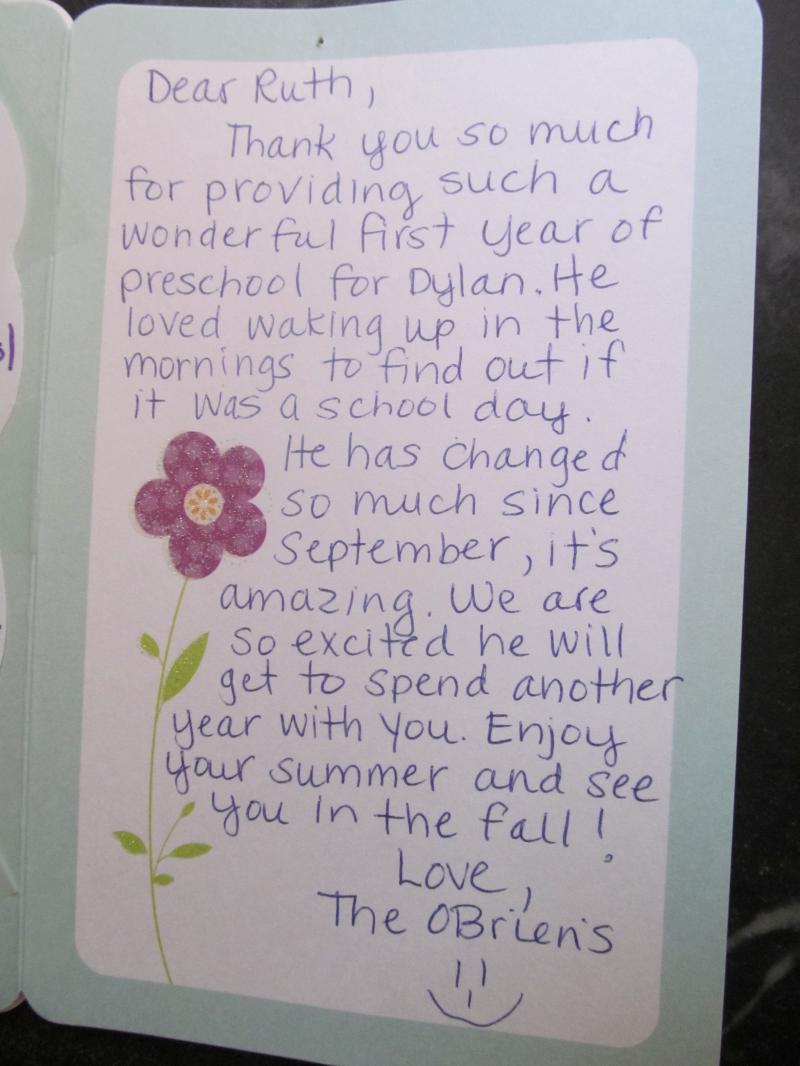 Dear Ruth,
Thank you so much
for providing such a
wonderful first year of
preschool for Dylan. He
loved waking up in the
mornings to find out if
it was a school day.
He has changed
so much since
September, it's
amazing. We are
so excited he will
get to spend another
year with you. Enjoy
your summer and see
you in the fall!
Love,
The OBrien's